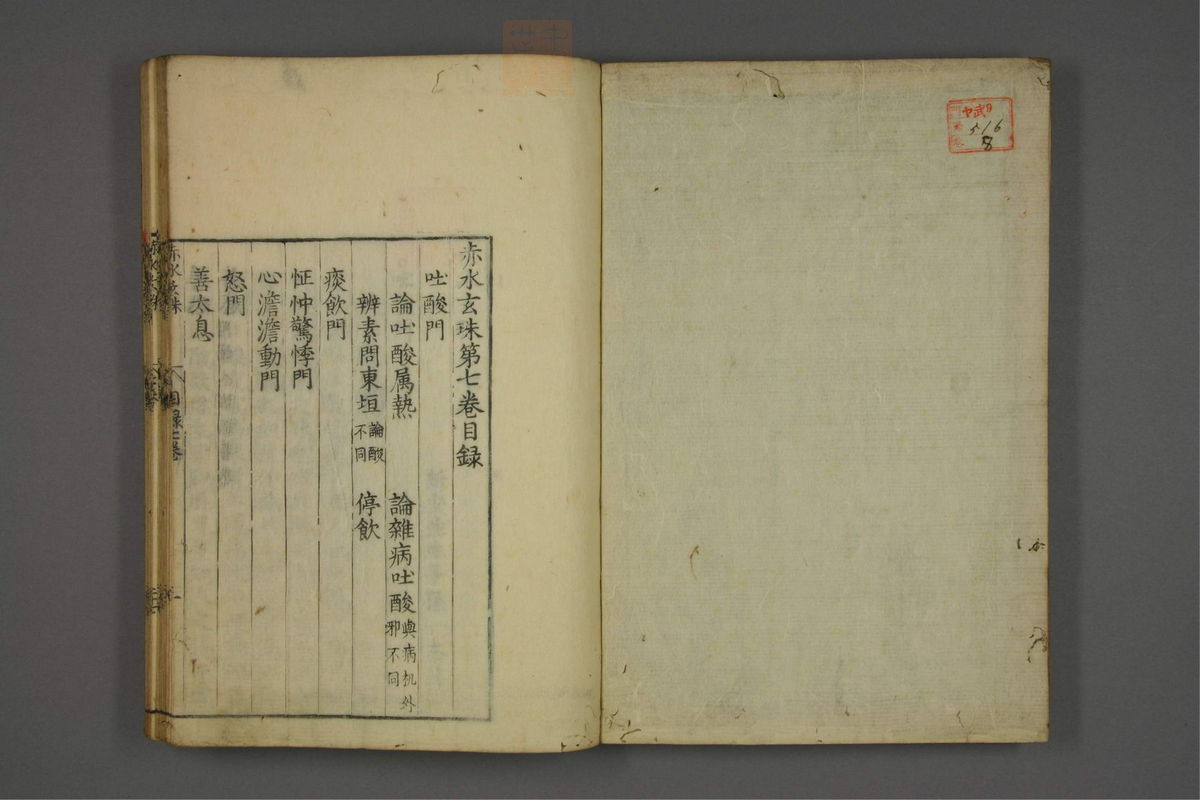 赤水玄珠第七巻目録
吐酸門
論吐酸属熱 論雜病吐酸與病机外邪不同
辨素問東垣論酸不同 停飲
痰飲門
怔忡驚悸門
心澹澹動門
怒門
善太息
赤水玄珠 目録七巻
武9
516
8